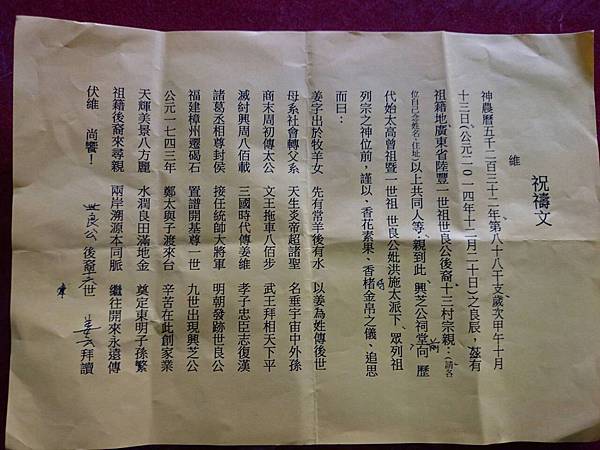 祝禱文
維
神農曆五千二百三十二年、第八十八干支歲次甲午十月
十三日、(公元二〇一四年十二月二十日)之良辰，茲有
祖籍地、廣東省陸豐一世祖世良公後裔、十三村宗親…(請各
位自己念姓名、住址)以上共同人等…親到此、興芝公祠堂前向、歷
代始太高曾祖暨一世祖 世良公妣洪施太派下、眾列祖
列宗之神位前，謹以、香花素果、香楮金帛之儀、追思
而曰：
姜字出於牧羊女 先有常羊後有水 以姜為姓傳後世
母系社會轉父系 天生炎帝超諸聖 名垂宇宙中外孫
商末周初傳太公 文王拖車八佰步 武王拜相天下平
滅紂興周八佰載 三國時代傳姜維 孝子忠臣志復漢
諸葛丞相尊封侯 接任統帥大將軍 明朝發跡世良公
福建樟州遷碣石 置譜開基尊一世 九世出現興芝公
公元一七四三年 鄭太與子渡來台 辛苦在此創家業
天輝美景八方麗 水潤良田滿地金 奠定東明子孫繁
祖籍後裔來尋親 兩岸溯源本同脈 繼往開來永遠傳
伏維 尚饗！ 世良公 後裔 世 姜 拜讀